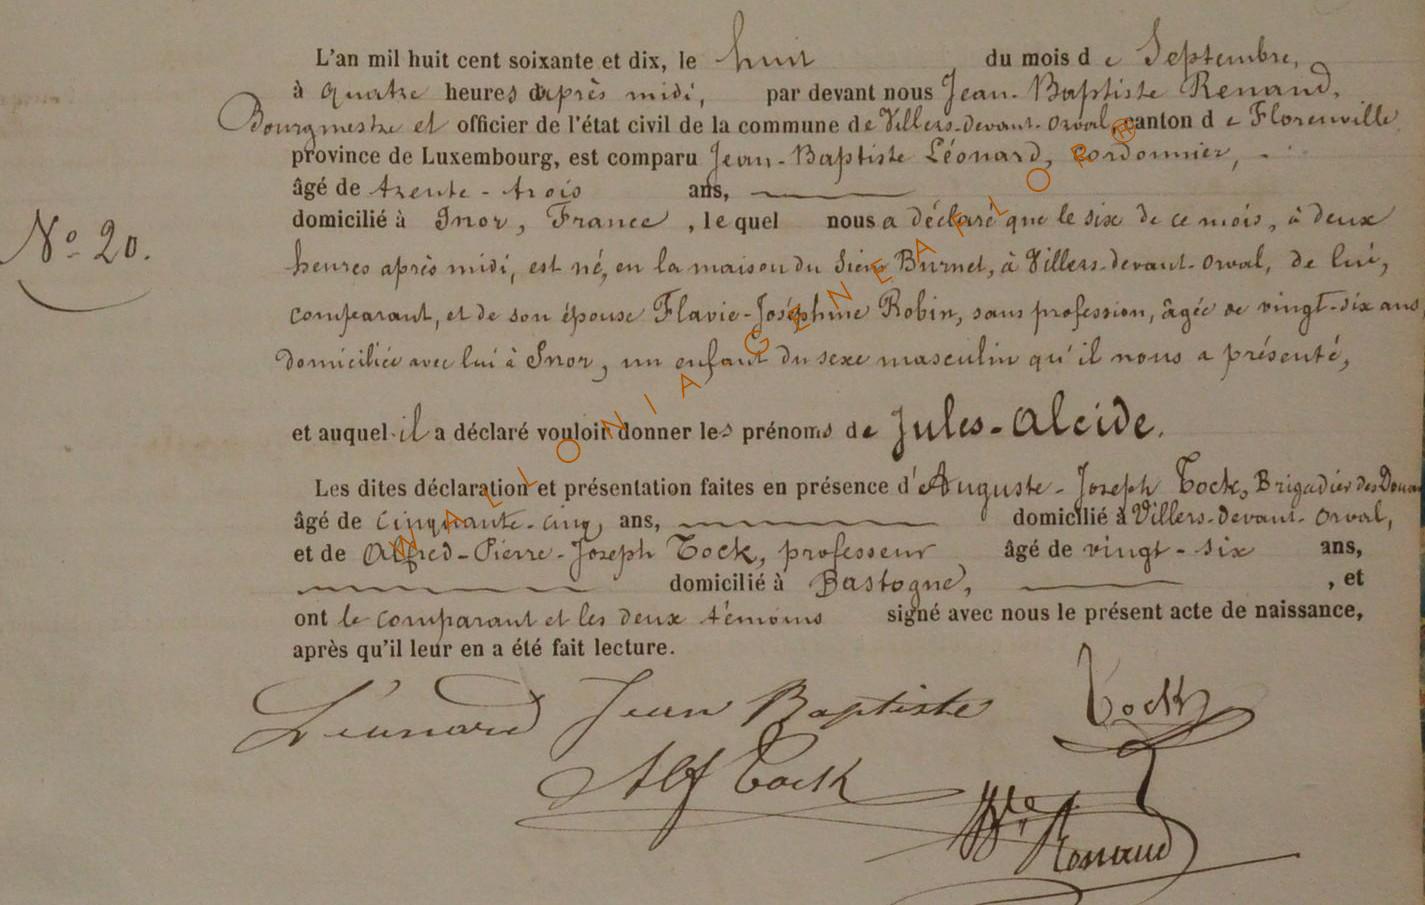 L'an mil huit cent soixante et dix, le huit du mois de Septembre,
à quatre heures après midi, par devant nous Jean-Baptiste Renaud,
Bourgmestre et officier de l'état civil de la commune de Villers-devant-Orval, canton de Florenville
province de Luxembourg, est comparu Jean-Baptiste Léonard, cordonnier,
âgé de trente-trois ans,
domicilié à Inor, France, lequel nous a déclaré que le six de ce mois, à deux
N° 20.
heures après midi, est né, en la maison du Sieur Burnet, à Villers-devant-Orval, de lui,
comparant, et de son épouse Flavie-Joséphine Robin, sans profession, âgée de vingt-six ans,
domiciliée avec lui à Inor, un enfant du sexe masculin qu'il nous a présenté,
et auquel il a déclaré vouloir donner les prénoms de Jules-Alcide.
Les dites déclaration et présentation faites en présence d'Auguste-Joseph Tock, Brigadier des Douan
âgé de cinquante-cinq ans, domicilié à Villers-devant-Orval,
et de Alfred-Pierre-Joseph Tock, professeur âgé de vingt-six ans,
domicilié à Bastogne, , et
ont le comparant et les deux témoins signé avec nous le présent acte de naissance,
après qu'il leur en a été fait lecture.
Léonard Jean Baptiste Tock
Alf Tock
Bte Renaud
WALLONIA GENEAFLOR®